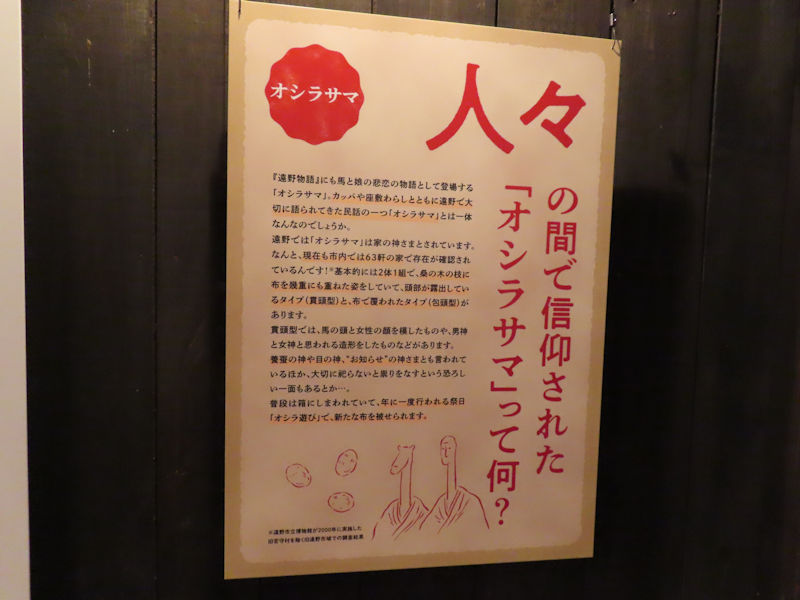 オシラサマ
人々
の間で信仰された
「オシラサマ」って何？
『遠野物語』にも馬と娘の悲恋の物語として登場する
「オシラサマ」。カッパや座敷わらしとともに遠野で大
切に語られてきた民話の一つ「オシラサマ」とは一体
なんなのでしょうか。
遠野では「オシラサマ」は家の神さまとされています。
なんと、現在も市内では63軒の家で存在が確認され
ているんです！※基本的には2体1組で、桑の木の枝に
布を幾重にも重ねた姿をしていて、頭部が露出してい
るタイプ（貫頭型）と、布で覆われたタイプ（包頭型）が
あります。
貫頭型では、馬の頭と女性の顔を模したものや、男神
と女神と思われる造形をしたものなどがあります。
養蚕の神や目の神、“お知らせ”の神さまとも言われて
いるほか、大切に祀らないと祟りをなすという恐ろし
い一面もあるとか…。
普段は箱にしまわれていて、年に一度行われる祭日
「オシラ遊び」で、新たな布を被せられます。
※遠野市立博物館が2000年に実施した
旧宮守村を除く旧遠野市域での調査結果